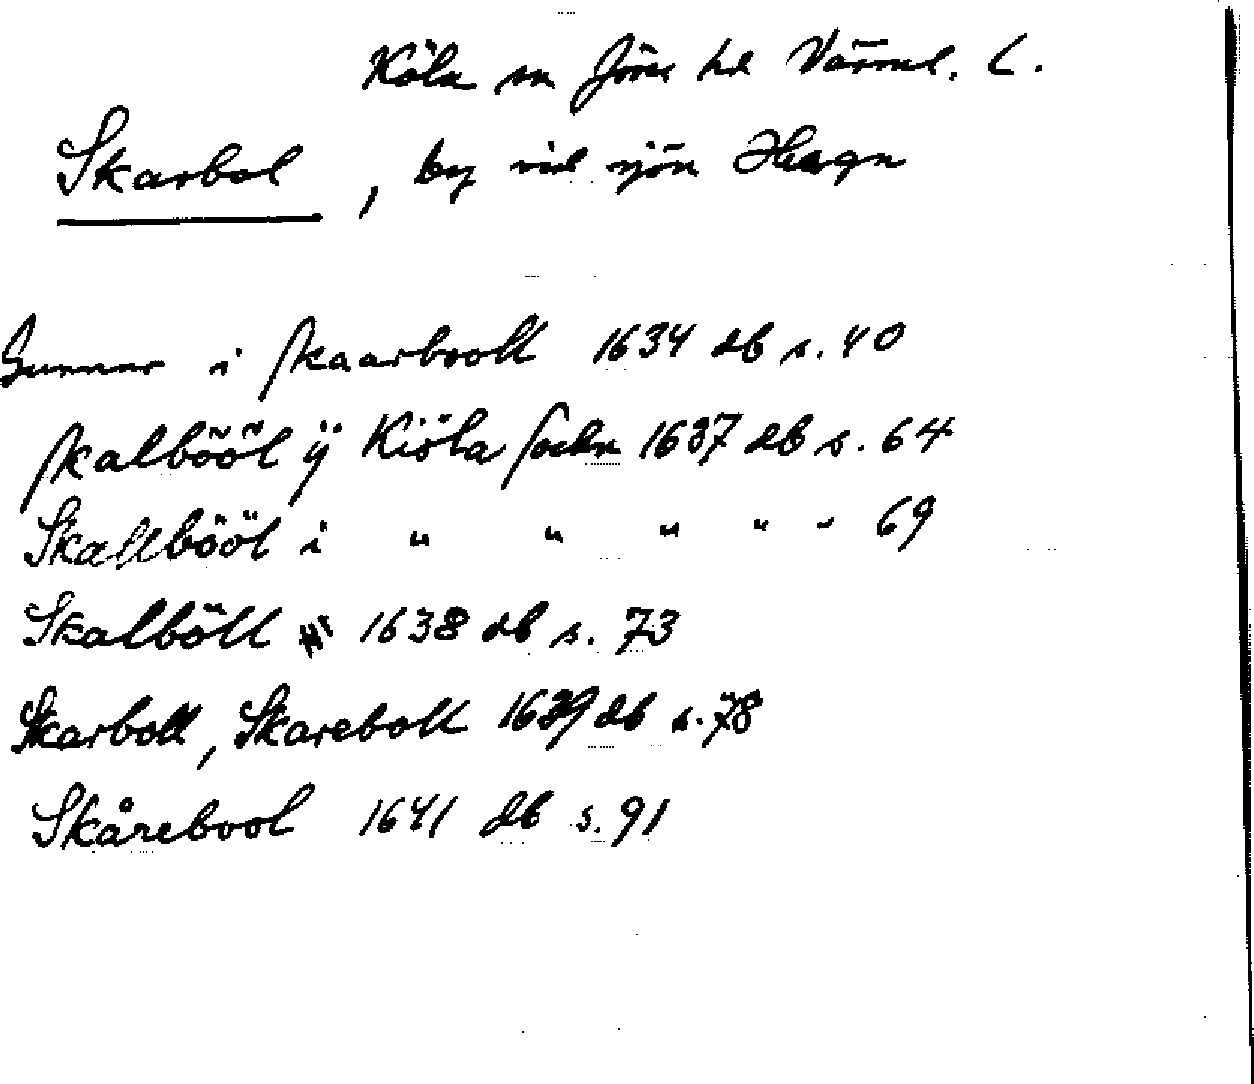 Köla sn Jösse hd Värml. L.
Skarbol, by vid sjön Hugn
Gunnar i skaarbooll 1634 db s. 40
skalbööl ÿ Kiöla sochn 1637 db s. 64
Skallbööl i " " " " - 69
Skalböll 1638 db s. 73
Skarboll, Skareboll 1639 db s. 78
Skårebool 1641 db s. 91